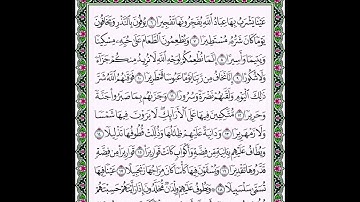 عَيْنًا يَشْرَبُ بِهَا عِبَادُ ٱللَّهِ يُفَجِّرُونَهَا تَفْجِيرًا ٦ يُوفُونَ بِٱلنَّذْرِ وَيَخَافُونَ
يَوْمًا كَانَ شَرُّهُۥ مُسْتَطِيرًا ٧ وَيُطْعِمُونَ ٱلطَّعَامَ عَلَىٰ حُبِّهِۦ مِسْكِينًا
وَيَتِيمًا وَأَسِيرًا ٨ إِنَّمَا نُطْعِمُكُمْ لِوَجْهِ ٱللَّهِ لَا نُرِيدُ مِنكُمْ جَزَآءً
وَلَا شُكُورًا ٩ إِنَّا نَخَافُ مِن رَّبِّنَا يَوْمًا عَبُوسًا قَمْطَرِيرًا ١٠ فَوَقَىٰهُمُ ٱللَّهُ شَرَّ
ذَٰلِكَ ٱلْيَوْمِ وَلَقَّىٰهُمْ نَضْرَةً وَسُرُورًا ١١ وَجَزَىٰهُم بِمَا صَبَرُوا۟ جَنَّةً
وَحَرِيرًا ١٢ مُّتَّكِـِٔينَ فِيهَا عَلَى ٱلْأَرَآئِكِ لَا يَرَوْنَ فِيهَا شَمْسًا
وَلَا زَمْهَرِيرًا ١٣ وَدَانِيَةً عَلَيْهِمْ ظِلَـٰلُهَا وَذُلِّلَتْ قُطُوفُهَا تَذْلِيلًا ١٤
وَيُطَافُ عَلَيْهِم بِـَٔانِيَةٍ مِّن فِضَّةٍ وَأَكْوَابٍ كَانَتْ قَوَارِيرَا۠ ١٥ قَوَارِيرَا۟ مِن فِضَّةٍ
قَدَّرُوهَا تَقْدِيرًا ١٦ وَيُسْقَوْنَ فِيهَا كَأْسًا كَانَ مِزَاجُهَا زَنجَبِيلًا ١٧ عَيْنًا فِيهَا
تُسَمَّىٰ سَلْسَبِيلًا ١٨ وَيَطُوفُ عَلَيْهِمْ وِلْدَٰنٌ مُّخَلَّدُونَ إِذَا رَأَيْتَهُمْ حَسِبْتَهُمْ